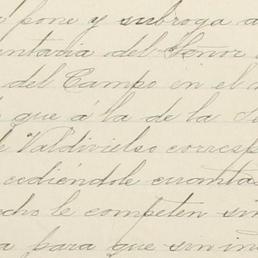 pone y subroga a
entaria del Señor
del Campo en el
que á la de la
de Valdivielso corresp
cediéndole cuantas
cho le competen sin
a para que sin in